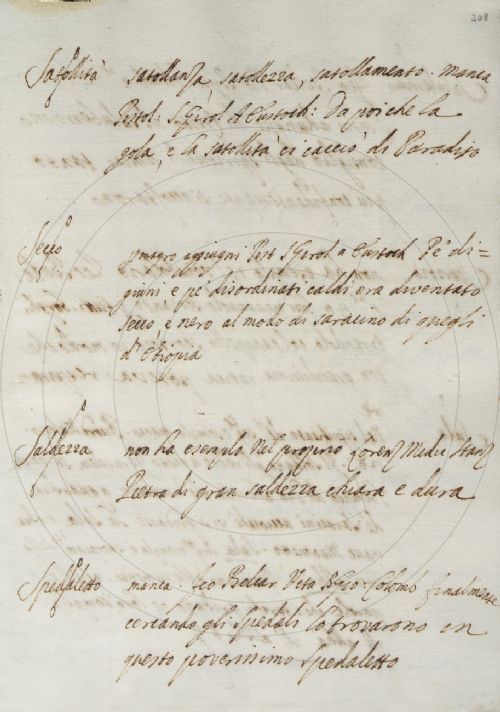 208
Satollità satollanza, satollezza, satollamento. manca
Pistol: S. Girol. A Eustoch: Da poi che la
gola, e la satollità ci cacciò di Paradiso
Secco p magro aggiugni Pist S Girol a Eustoch Pe' di=
giuni, e pe' disordinati caldi era diventato
secco, e nero al modo di saracino di quegli
d'Etiopia
Saldezza non ha esempio nel proprio Lorenz Medic stanz
Pietra di gran saldezza chiara e dura
Spedaletto manca. Feo Belcar Vita B. Gio. Colomb finalmente
cercando gli Spedali lo trovarono in
questo poverissimo Spedaletto